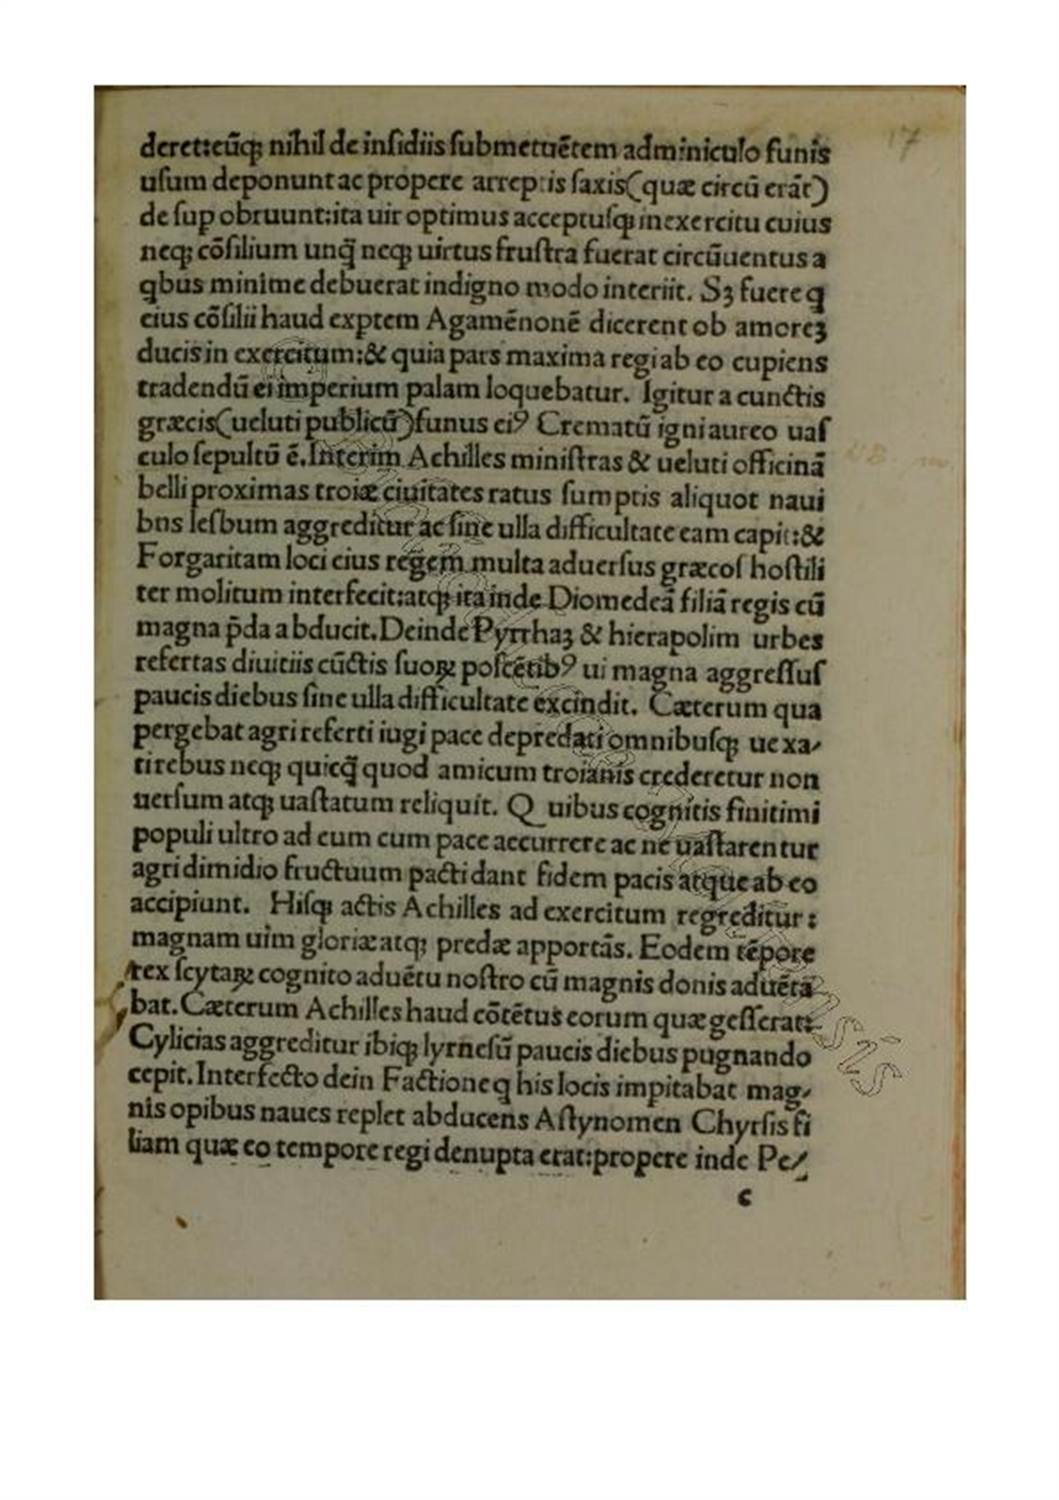 17
deret:eūqꝫ nihil de inſidiis ſubmetuētem adminiculo funis
uſum deponunt ac propere arreptis ſaxis(quæ circū erāt)
de ſup obruunt:ita uir optimus acceptuſqꝫ in exercitu cuius
neqꝫ cōſilium unq̄ neqꝫ uirtus fruſtra fuerat circūuentus a
qbus minime debuerat indigno modo interiit. Sꝫ fuere q
eius cōſilii haud exptem Agamēnonē dicerent ob amoreꝫ
ducis in exercitum:& quia pars maxima regi ab eo cupiens
tradendū ei imperium palam loquebatur. Igitur a cunctis
græcis(ueluti publicū)funus eiꝰ Crematū igni aureo uaſ
culo ſepultū ē.Interim Achilles miniſtras & ueluti officinā
belli proximas troiæ ciuitates ratus ſumptis aliquot naui
bns leſbum aggreditur ac ſine ulla difficultate eam capit:&
Forgaritam loci eius regem multa aduerſus græcoſ hoſtili
ter molitum interfecit:atqꝫ ita inde Diomedeā filiā regis cū
magna p̄da abducit.Deinde Pyrrhaꝫ & hierapolim urbes
refertas diuitiis cūctis ſuoꝝ poſcētibꝰ ui magna aggreſſuſ
paucis diebus ſine ulla difficultate excindit. Cæterum qua
pergebat agri referti iugi pace depredati omnibuſqꝫ uexa⸗
ti rebus neqꝫ quicq̄ quod amicum troianis crederetur non
uerſum atqꝫ uaſtatum reliquit. Quibus cognitis finitimi
populi ultro ad eum cum pace accurrere ac ne uaſtarentur
agri dimidio fructuum pacti dant fidem pacis atque ab eo
accipiunt. Hiſqꝫ actis Achilles ad exercitum regreditur:
magnam uim gloriæ atqꝫ predæ apportās. Eodem tēpore
rex ſcytaꝝ cognito aduētu noſtro cū magnis donis aduēta
bat.Cæterum Achilles haud cōtētus eorum quæ geſſerat:
Cylicias aggreditur ibiqꝫ lyrneſū paucis diebus pugnando
cepit.Interfecto dein Factione q his locis impitabat mag⸗
nis opibus naues replet abducens Aſtynomen Chyrſis fi
liam quæ eo tempore regi denupta erat:propere inde Pe⸗
c